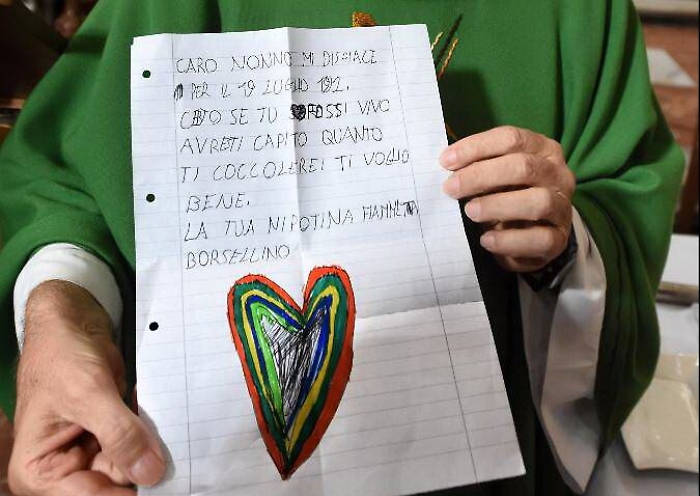 CARO NONNO MI DISPIACE
PER IL 19 LUGLIO 192.
CERTO SE TU FOSSI VIVO
AVRETI CAPITO QUANTO
TI COCCOLEREI TI VOGLIO
BENE.
LA TUA NIPOTINA FIAMMETTA
BORSELLINO